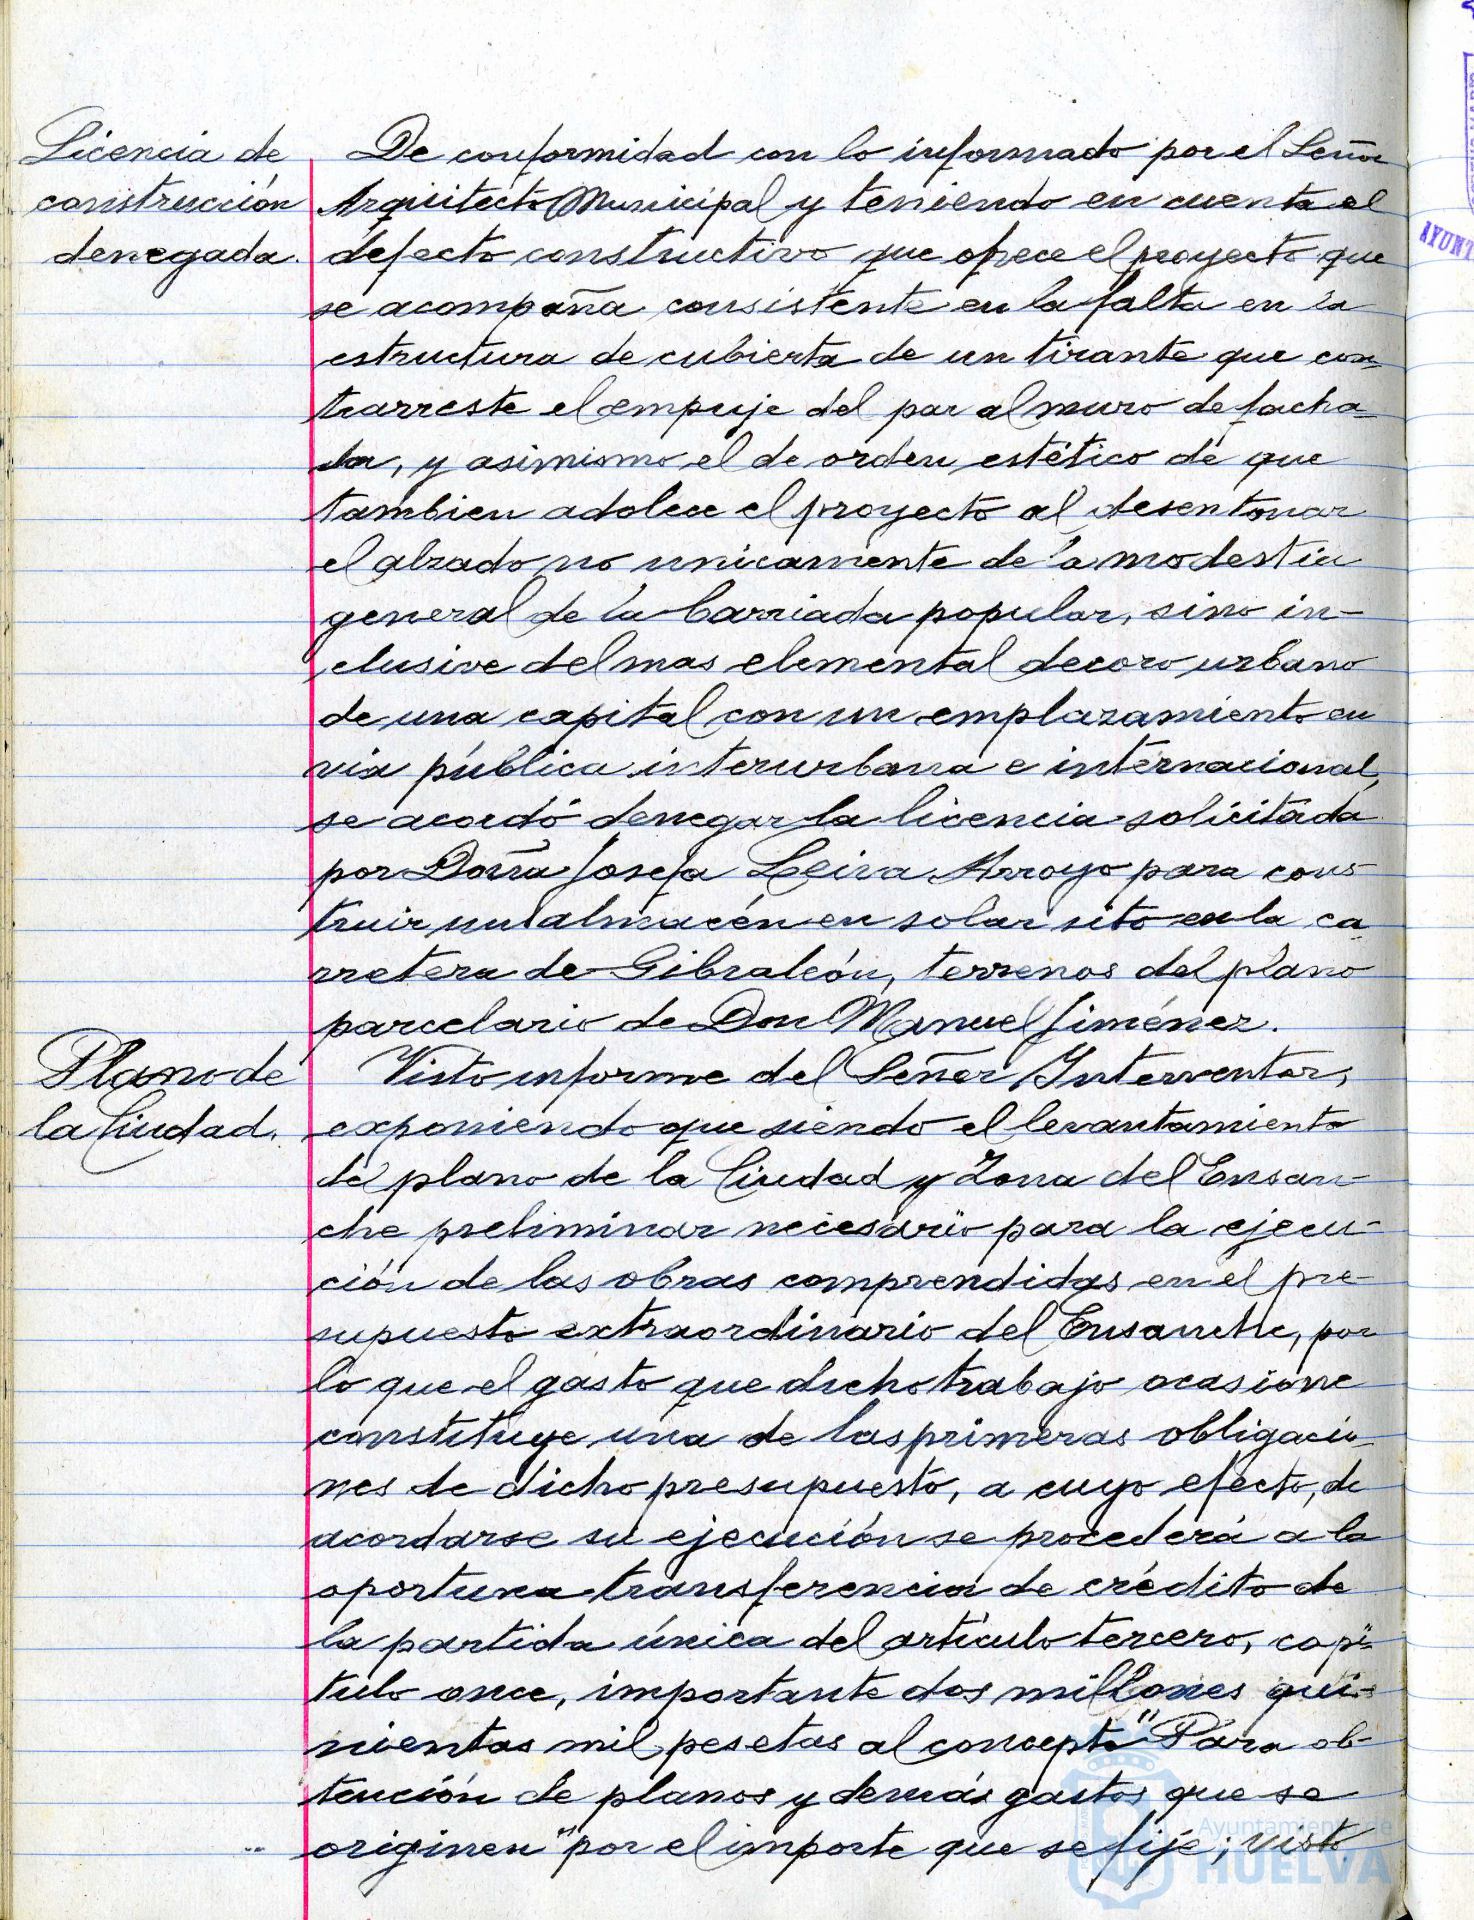 Licencia de
construcción
denegada.
De conformidad con lo informado por el Señor
Arquitecto Municipal y teniendo en cuenta el
defecto constructivo que ofrece el proyecto que
se acompaña consistente en la falta en la
estructura de cubierta de un tirante que con-
trarreste el empuje del par al muro de facha-
da, y asimismo el de orden estético de que
tambien adolece el proyecto al desentonar
el alzado no unicamente de la modestia
general de la barriada popular, sino in-
clusive del mas elemental decoro urbano
de una capital con un emplazamiento en
via pública interurbana e internacional,
se acordó denegar la licencia solicitada
por Doña Josefa Leiva Arroyo para cons-
truir un almacén en solar sito en la ca-
rretera de Gibraleón, terrenos del plano
parcelario de Don Manuel Jiménez.
Plano de
la Ciudad.
Visto informe del Señor Interventor,
exponiendo que siendo el levantamiento
del plano de la Ciudad y Zona del Ensan-
che preliminar necesario para la ejecu-
ción de las obras comprendidas en el pre-
supuesto extraordinario del Ensanche, por
lo que el gasto que dicho trabajo ocasione
constituye una de las primeras obligacio-
nes de dicho presupuesto, a cuyo efecto, de
acordarse su ejecución se procederá a la
oportuna transferencia de crédito de
la partida única del artículo tercero, capí-
tulo once, importante dos millones qui-
nientas mil pesetas al concepto "Para ob-
tención de planos y demás gastos que se
originen" por el importe que se fije; visto
Ayuntamiento de
HUELVA
AYUNT